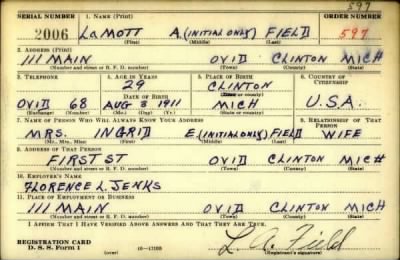 597
SERIAL NUMBER 1. NAME (Print) ORDER NUMBER
2006 LaMOTT A. (INITIAL ONLY) FIELD 597
(First) (Middle) (Last)
2. ADDRESS (Print)
111 MAIN OVID CLINTON MICH
(Number and street or R. F. D. number) (Town) (County) (State)
3. TELEPHONE 4. AGE IN YEARS 5. PLACE OF BIRTH 6. COUNTRY OF CITIZENSHIP
29 CLINTON
DATE OF BIRTH (Town or county)
OVID 68 AUG 3 1911 MICH U.S.A.
(Exchange) (No.) (Mo.) (Day) (Yr.) (State or country)
7. NAME OF PERSON WHO WILL ALWAYS KNOW YOUR ADDRESS 8. RELATIONSHIP OF THAT PERSON
MRS. INGRID E. (INITIAL ONLY) FIELD WIFE
(Mr., Mrs., Miss) (First) (Middle) (Last)
9. ADDRESS OF THAT PERSON
FIRST ST OVID CLINTON MICH
(Number and street or R. F. D. number) (Town) (County) (State)
10. EMPLOYER'S NAME
FLORENCE L. JENKS
11. PLACE OF EMPLOYMENT OR BUSINESS
111 MAIN OVID CLINTON MICH
(Number and street or R. F. D. number) (Town) (County) (State)
I AFFIRM THAT I HAVE VERIFIED ABOVE ANSWERS AND THAT THEY ARE TRUE.
REGISTRATION CARD
D. S. S. Form 1 (over) L. A. Field
(Registrant's signature)